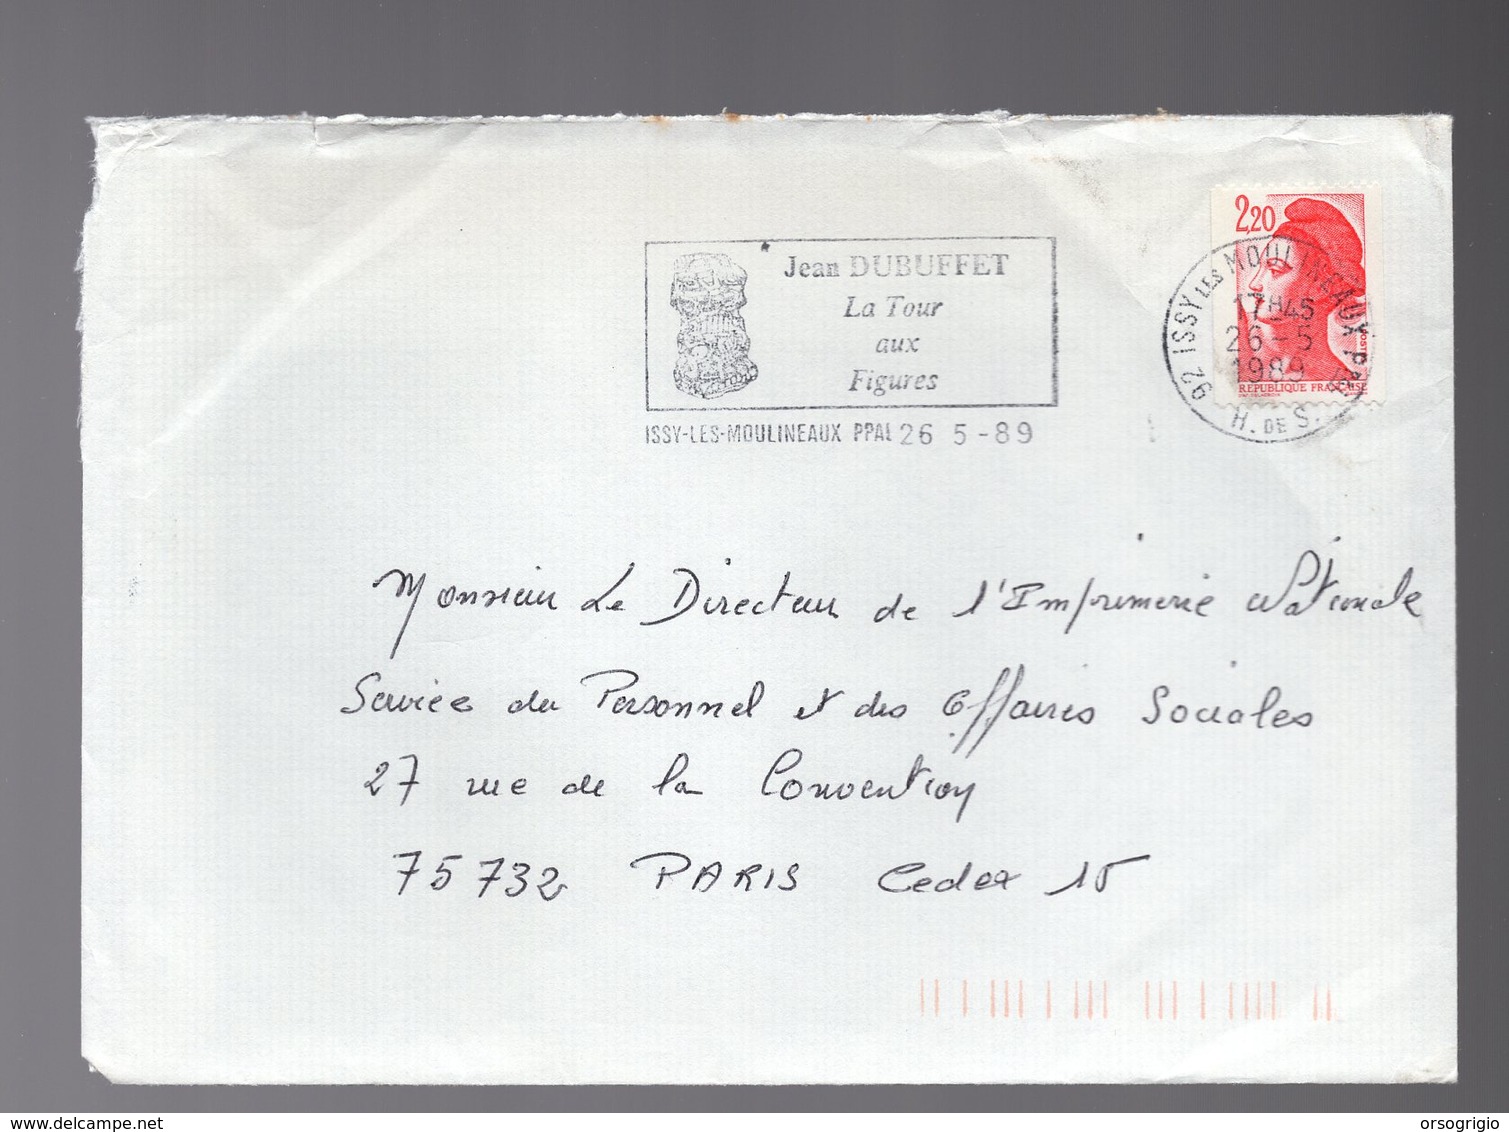 2,20
Jean DUBUFFET
La Tour
aux
Figures
ISSY-LES-MOULINEAUX PPAL 26 5 -89
92 ISSY LES MOULINEAUX PPAL
17H45
26-5
1989
H. DE S.
POSTES
REPUBLIQUE FRANÇAISE
Monsieur Le Directeur de l'Imprimerie Nationale
Service du Personnel et des Affaires Sociales
27 rue de la Convention
75732 PARIS Cedex 15
www.delcampe.net
orsogrigio